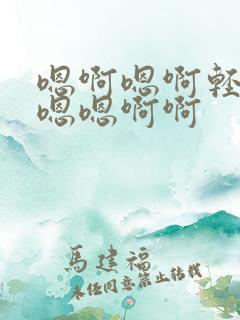 嗯啊嗯啊輕
嗯嗯啊啊
馬建福
未經同意禁止轉載